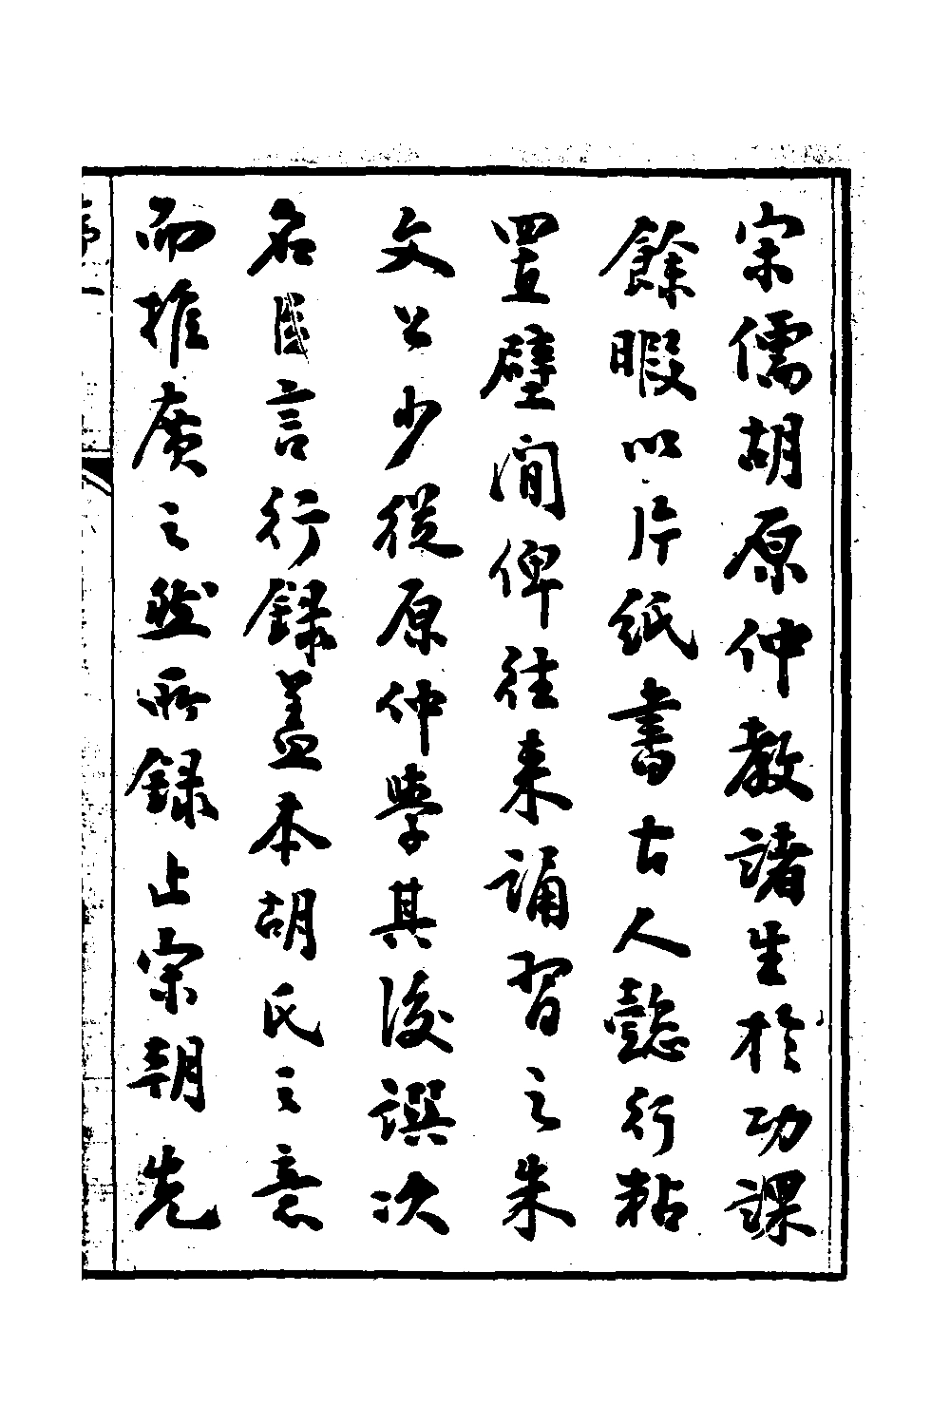 宋儒胡原仲教諸生於功課
餘暇以片紙書古人懿行粘
置壁間俾往来誦習之朱
文公少從原仲學其後譔次
名臣言行録盖本胡氏之意
而推廣之然所録止宋朝先
序
一